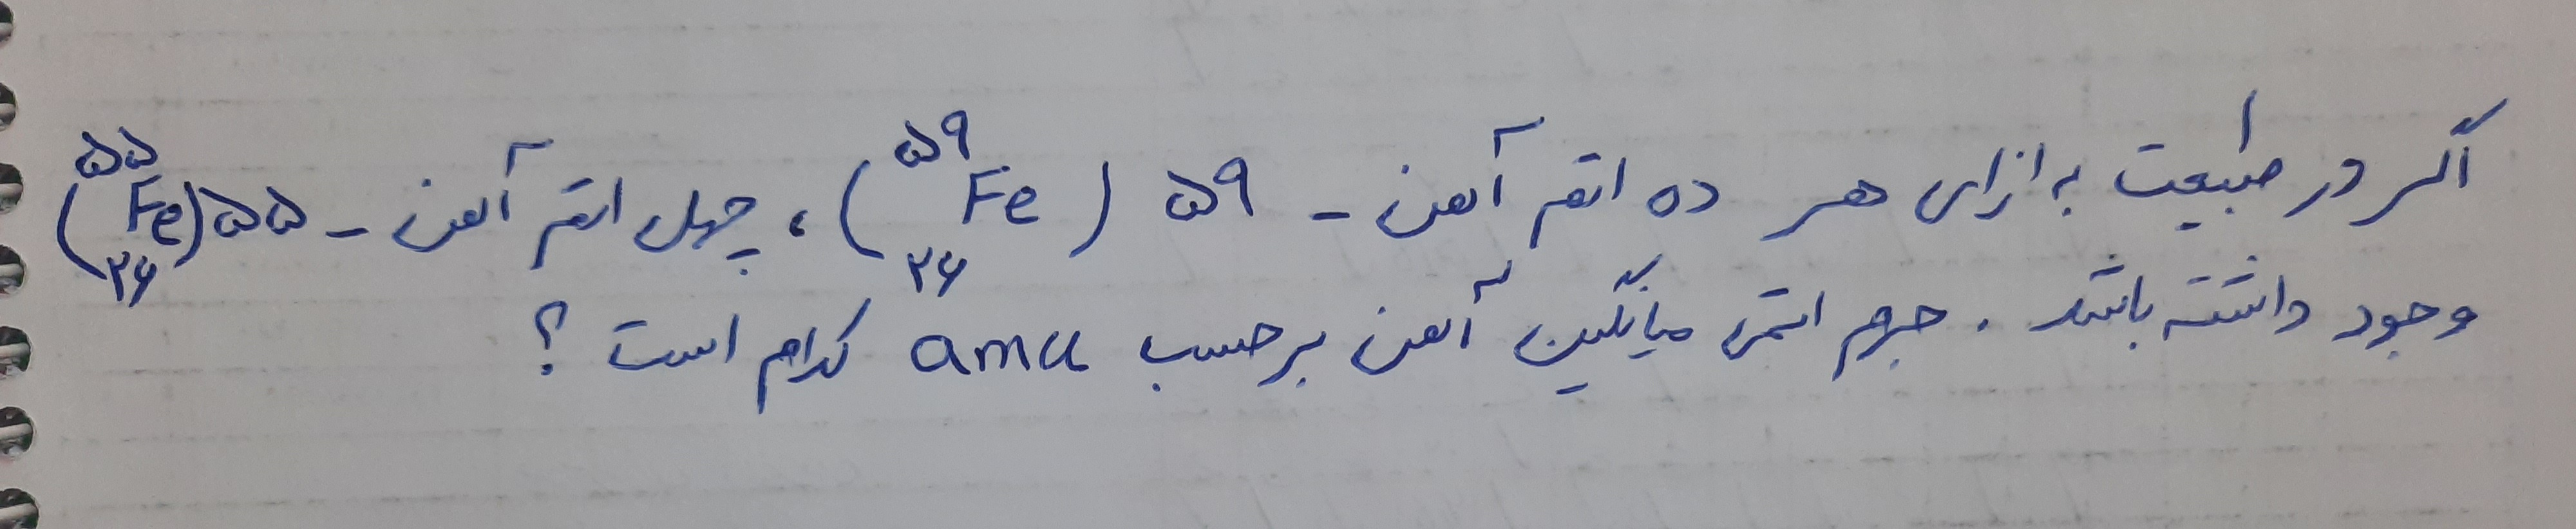 اگر در طبیعت به ازای هر ده اتم آهن - ۵۹ (⁵⁹₂₆Fe)، چهل اتم آهن - ۵۵ (⁵⁵₂₆Fe)
وجود داشته باشد. جرم اتمی میانگین آهن برحسب amu کدام است؟